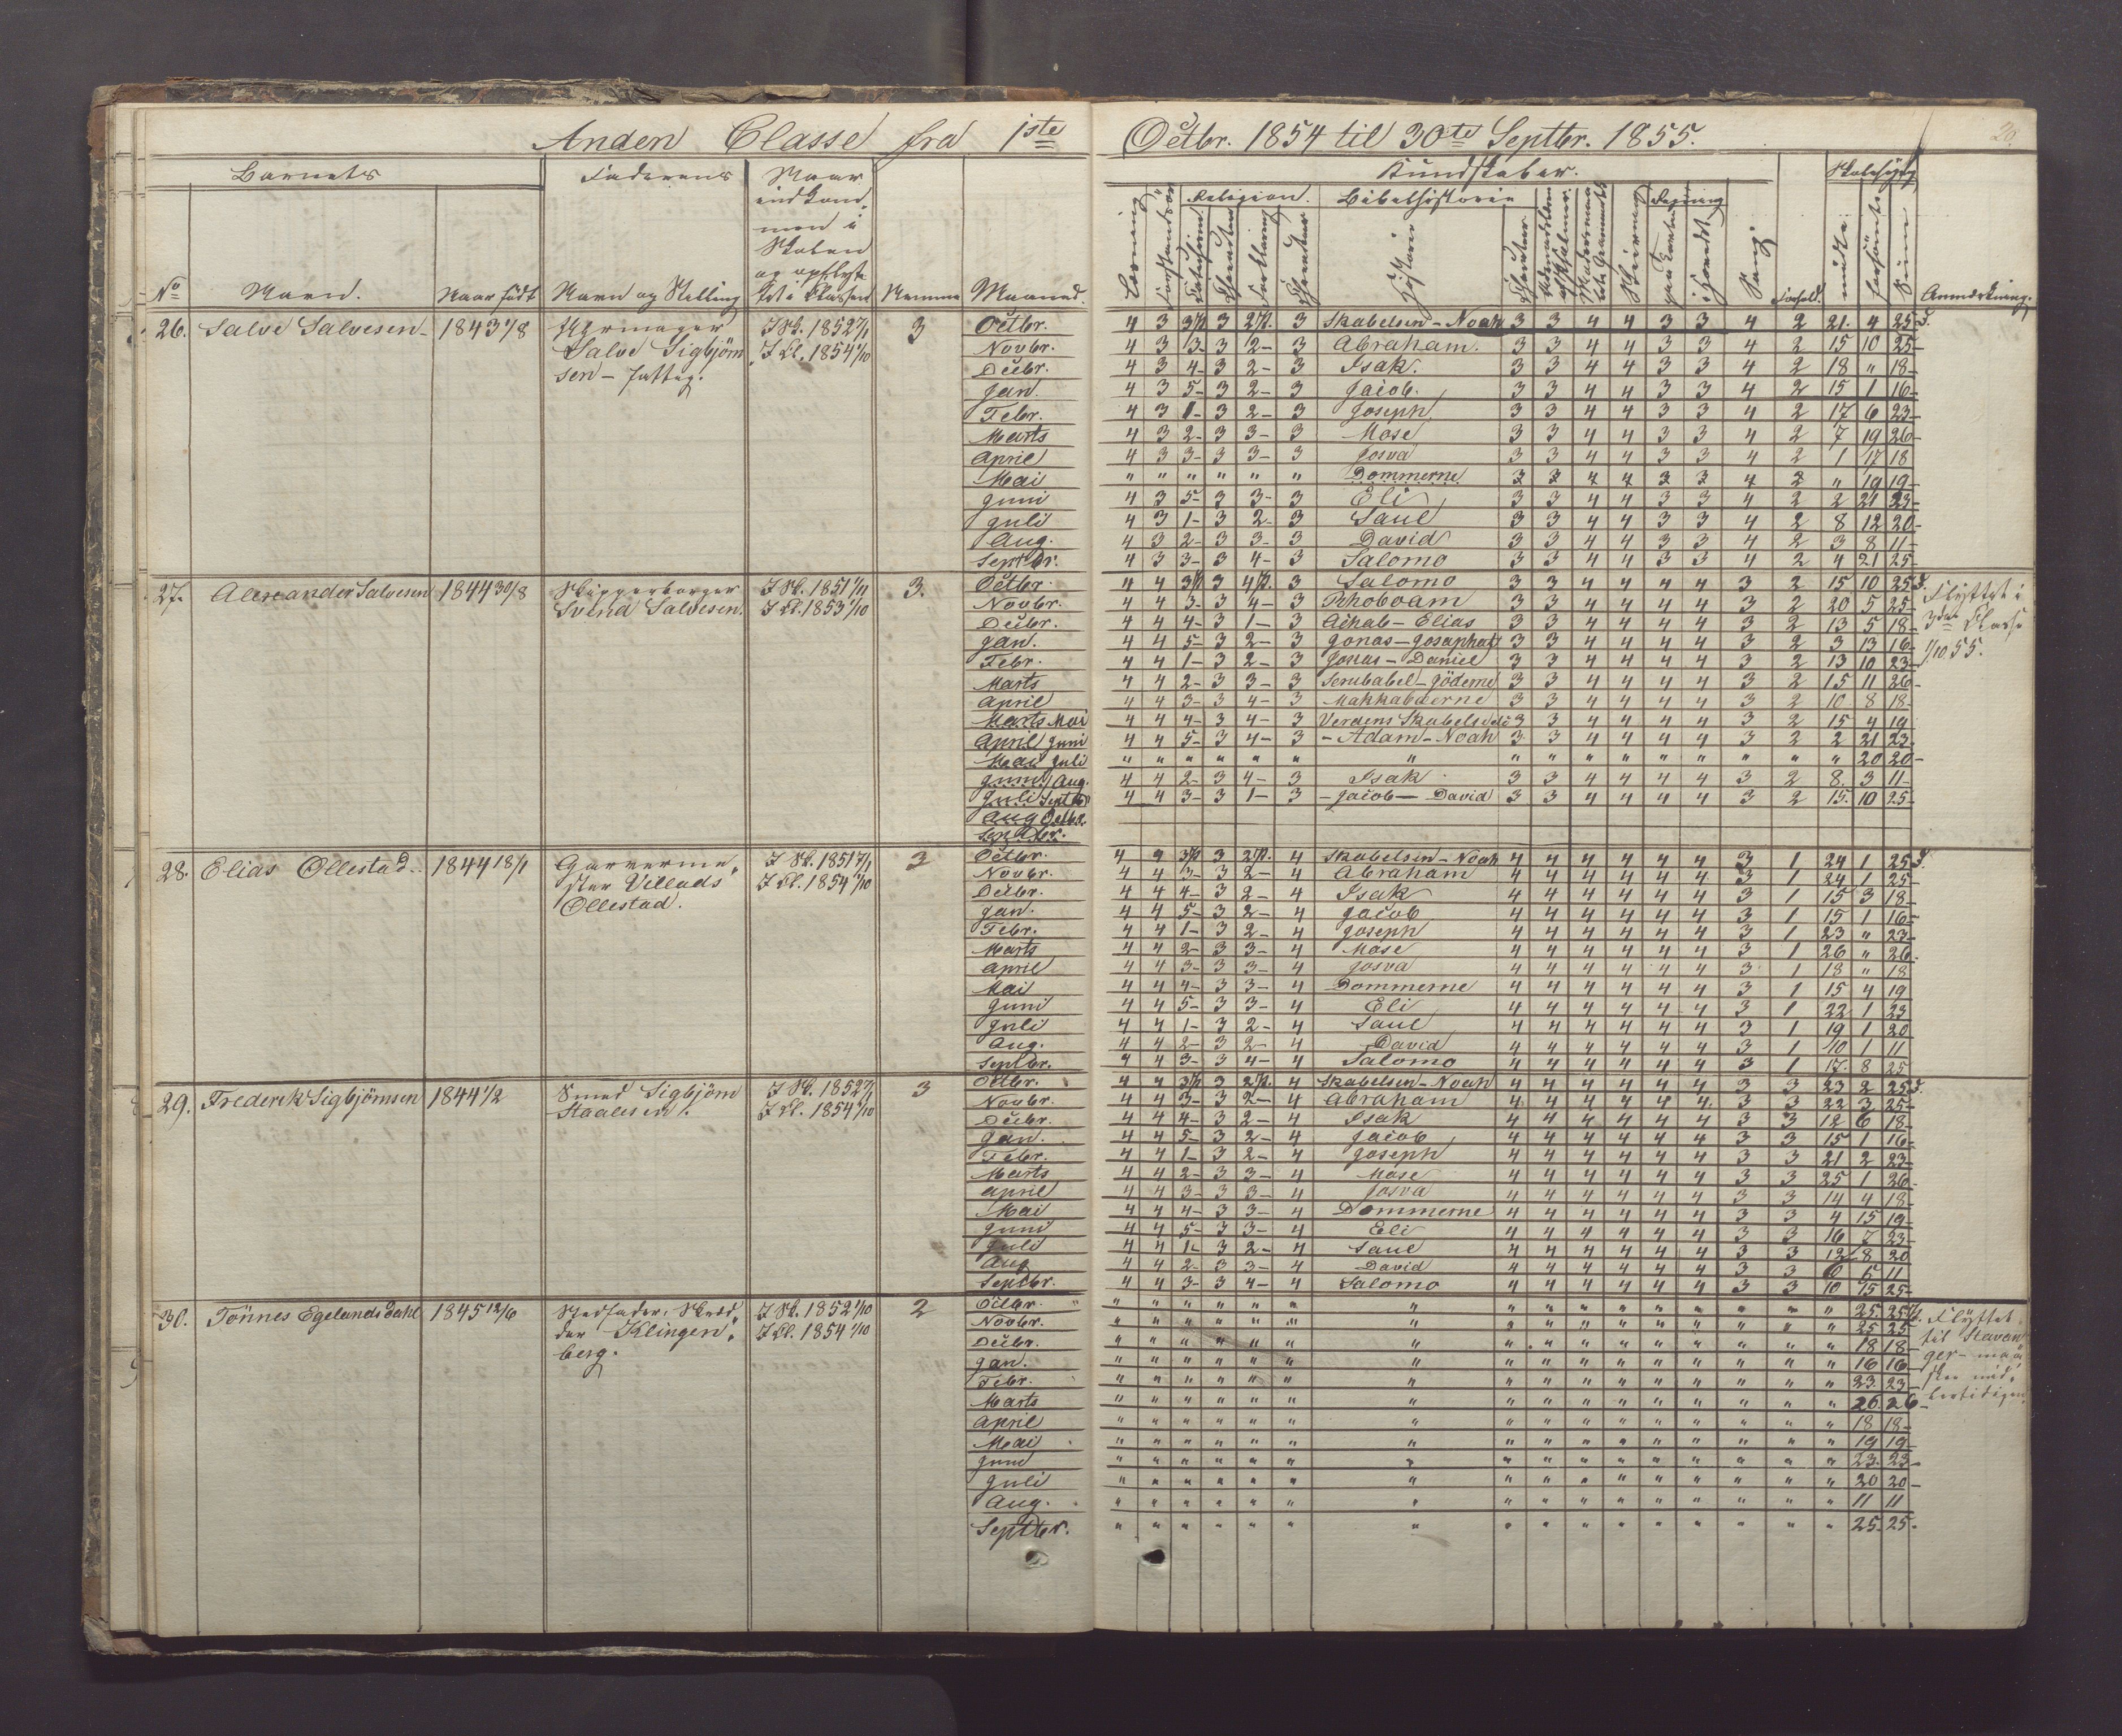 Anden Classe fra 1ste Octbr. 1854 til 30te Septbr. 1855.
20.
Barnets
Faderens
Naar indkommen i Skolen og opflyttet i Classen
Kundskaber.
Skolesøgn
Religion.
Bibelhistorie
No
Navn.
Naar født
Navn og Stilling
Nemme
Maaned.
Læsning
Forklaring
Historier
Skrivning
Sang
Forhold.
mødte
forsømte
Anmærkning.
26. Salve Salvesen 1843 1/8
Salve Sigbjörnsen - fattig.
I Sk. 1852 7/1
I Cl. 1854 1/10
3
Octbr. 4 3 3 3 3 Skabelsen - Noah 3 3 4 4 3 3 4 2 21. 4 25
Novbr. 4 3 3- 3 2- 3 Abraham. 3 3 4 4 3 3 4 2 15 10 25-
Decbr. 4 3 4- 3 2- 3 Isak. 3 3 4 4 3 3 4 2 18 " 18-
Jan. 4 3 5- 3 2- 3 Jacob. 3 3 4 4 3 3 4 2 15 1 16-
Febr. 4 3 1- 3 2- 3 Joseph 3 3 4 4 3 3 4 2 17 6 23-
Marts 4 3 2- 3 3- 3 Mose 3 3 4 4 3 3 4 2 7 19 26-
April 4 3 3- 3 3- 3 Josva 3 3 4 4 3 3 4 2 1 17 18
Mai " " " " " " Dommerne 3 3 4 4 3 3 4 2 " 19 19-
Juni 4 3 5- 3 3- 3 Eli 3 3 4 4 3 3 4 2 2 21 23-
Juli 4 3 1- 3 2- 3 Saul 3 3 4 4 3 3 4 2 8 12 20-
Aug. 4 3 2- 3 3- 3 David 3 3 4 4 3 3 4 2 3 8 11-
Septbr. 4 3 3- 3 4- 3 Salomo 3 3 4 4 3 3 4 2 4 21 25-
27. Alexander Salvesen 1844 30/8
Skipperborger
Svend Salvesen.
I Sk. 1851 1/11
I Cl. 1853 1/10
3.
Flyttet i
3die Classe
1/10 55.
Octbr. 4 4 3 3 3 Salomo 3 3 4 4 4 4 3 2 15 10 25
Novbr. 4 4 3- 3 4- 3 Rhoboam 3 3 4 4 4 4 3 2 20 5 25-
Decbr. 4 4 4- 3 1- 3 Achab - Elias 3 3 4 4 4 4 3 2 13 5 18-
Jan. 4 4 5- 3 2- 3 Jonas - Josaphat 3 3 4 4 4 4 3 2 3 13 16-
Febr. 4 4 1- 3 2- 3 Jonas - Daniel 3 3 4 4 4 4 3 2 13 10 23-
Marts 4 4 2- 3 3- 3 Serubabel - Jöderne 3 3 4 4 4 4 3 2 15 11 26-
April 4 4 3- 3 4- 3 Makkabæerne 3 3 4 4 4 4 3 2 10 8 18-
Marts Mai 4 4 4- 3 4- 3 Verdens Skabelse 3 3 4 4 4 4 3 2 15 4 19
April Juni 4 4 5- 3 4- 3 - Adam - Noah 3 3 4 4 4 4 3 2 2 21 23.
Mai Juli " " " " " " " " " " " " " " " " 20 20-
Juni Aug. 4 4 2- 3 4- 3 Isak 3 3 4 4 4 4 3 2 8 3 11-
Juli Septbr 4 4 3- 3 1- 3 - Jacob - David 3 3 4 4 4 4 3 2 15. 10 25-
Aug Octbr.
Septbr.
28. Elias Ollestad 1844 18/1
Garvermester Villads
Ollestad.
I Sk. 1851 7/1
I Cl. 1854 1/10
3
Octbr. 4 4 3 3 4 Skabelsen - Noah 4 4 4 4 4 4 3 1 24 1 25
Novbr. 4 4 3- 3 2- 4 Abraham 4 4 4 4 4 4 3 1 24 1 25-
Decbr. 4 4 4- 3 2- 4 Isak 4 4 4 4 4 4 3 1 15 3 18-
Jan. 4 4 5- 3 2- 4 Jacob 4 4 4 4 4 4 3 1 15 1 16-
Febr. 4 4 1- 3 2- 4 Joseph 4 4 4 4 4 4 3 1 23 " 23-
Marts 4 4 2- 3 3- 4 Mose 4 4 4 4 4 4 3 1 26 " 26.
April 4 4 3- 3 3- 4 Josva 4 4 4 4 4 4 3 1 18 " 18
Mai 4 4 4- 3 3- 4 Dommerne 4 4 4 4 4 4 3 1 15 4 19
Juni 4 4 5- 3 3- 4 Eli 4 4 4 4 4 4 3 1 22 1 23
Juli 4 4 1- 3 2- 4 Saul 4 4 4 4 4 4 3 1 19 1 20
Aug. 4 4 2- 3 2- 4 David 4 4 4 4 4 4 3 1 10 1 11
Septbr. 4 4 3- 3 4- 4 Salomo 4 4 4 4 4 4 3 1 17. 8 25
29. Frederik Sigbjörnsen 1844 1/2
Smed Sigbjörn
Staalesen.
I Sk. 1852 7/1
I Cl. 1854 1/10
3
Octbr. 4 4 3 3 4 Skabelsen - Noah 4 4 4 4 4 4 3 3 23 2 25
Novbr. 4 4 3- 3 2- 4 Abraham 4 4 4 4 4 4 3 3 22 3 25-
Decbr. 4 4 4- 3 2- 4 Isak 4 4 4 4 4 4 3 3 12 6 18-
Jan. 4 4 5- 3 2- 4 Jacob 4 4 4 4 4 4 3 3 15 1 16-
Febr. 4 4 1- 3 2- 4 Joseph 4 4 4 4 4 4 3 3 21 2 23-
Marts 4 4 2- 3 3- 4 Mose 4 4 4 4 4 4 3 3 25 1 26.
April 4 4 3- 3 3- 4 Josva 4 4 4 4 4 4 3 3 14 4 18-
Mai 4 4 4- 3 3- 4 Dommerne 4 4 4 4 4 4 3 3 4 15 19-
Juni 4 4 5- 3 3- 4 Eli 4 4 4 4 4 4 3 3 16 7 23-
Juli 4 4 1- 3 2- 4 Saul 4 4 4 4 4 4 3 3 12 8 20
Aug 4 4 2- 3 3- 4 David 4 4 4 4 4 4 3 3 6 5 11
Septbr. 4 4 3- 3 4- 4 Salomo 4 4 4 4 4 4 3 3 10 15 25-
30. Tönnes Egelandsdahl 1845 12/6
Stedfader:
Klingenberg.
I Sk. 1852 1/10
I Cl. 1854 1/10
2
Flyttet
til Stavanger -
Octbr. " " " " " " " " " " " " " " " " 25 25
Novbr. " " " " " " " " " " " " " " " " 25 25
Decbr. " " " " " " " " " " " " " " " " 18 18-
Jan. " " " " " " " " " " " " " " " " 16 16-
Febr. " " " " " " " " " " " " " " " " 23. 23-
Marts " " " " " " " " " " " " " " " " 26. 26-
April " " " " " " " " " " " " " " " " 18 18-
Mai " " " " " " " " " " " " " " " " 19 19-
Juni " " " " " " " " " " " " " " " " 23. 23-
Juli " " " " " " " " " " " " " " " " 20 20-
Aug. " " " " " " " " " " " " " " " " 11 11
Septbr. " " " " " " " " " " " " " " " " 25. 25-